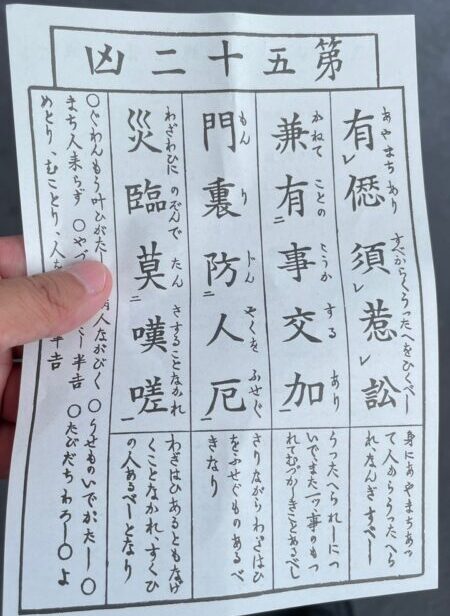 第五十二凶
あやまちあり すべからくうったへをひくべし
有レ僁須レ惹レ訟
かねて ことの こうか する あり
兼有二事交加一
もん り じん やくを ふせぐ
門裏防二人厄一
わざわひに のぞんで たん さすることなかれ
災臨莫二嘆嗟一
身にあやまちあっ
て人からうったへら
れなんぎすべし
うったへられしにつ
いでまた一ッ事のもつ
れてむづかしきことあるべし
さりながらわざはひ
をふせぐものあるべ
きなり
わざはひあるともなげ
くことなかれ、すくひ
の人あるべしとなり
○ぐわんもう叶ひがたし 病人ながびく ○うせものいでがたし ○
まち人来らず ○や し半吉 ○たびだちわろし ○よ
めとり、むことり、人を 半吉